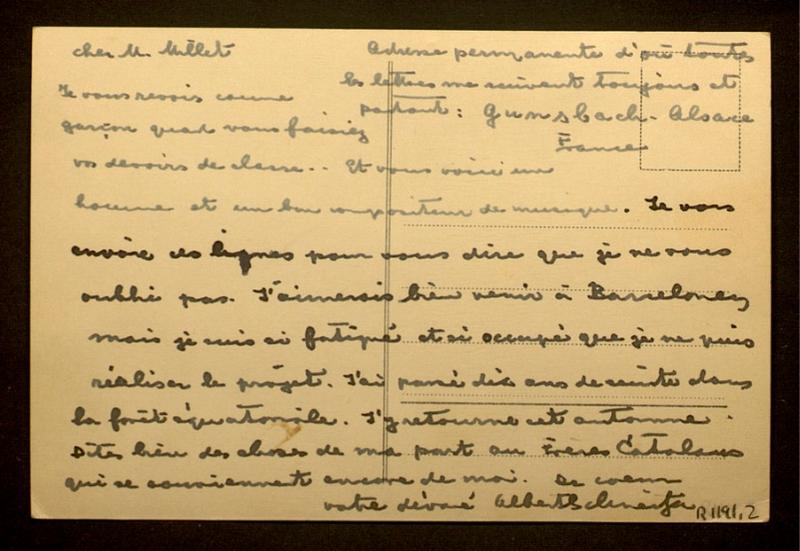 cher M. Millet
Adresse permanente d'où toutes
les lettres me suivent toujours et
partout : Gunsbach - Alsace
France
Je vous revois comme
garçon quad vous faisiez
vos devoirs de classe.. Et vous voici un
homme et un bon compositeur de musique. Je vous
envoie ces lignes pour vous dire que je ne vous
oublie pas. J'aimerais bien venir à Barcelone,
mais je suis si fatigué et si occupé que je ne puis
réaliser le projet. J'ai passé dix ans de suite dans
la forêt équatoriale. J'y retourne cet automne.
Dites bien des choses de ma part au Frères Catalans
qui se souviennent encore de moi. De coeur
votre dévoué Albert Schweitzer
R1191,2